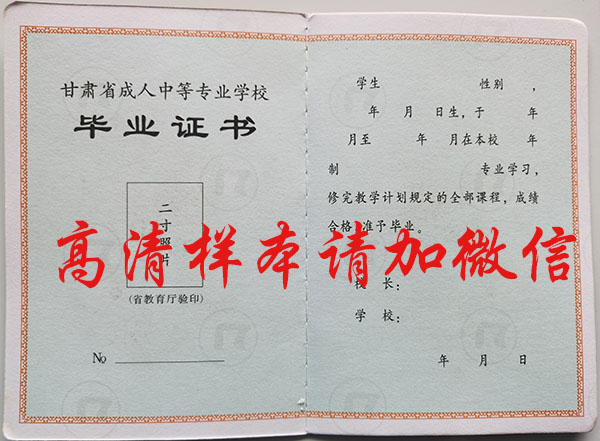 甘肃省成人中等专业学校
毕业证书
二寸照片
(省教育厅验印)
No
学生 性别 ，
年 月 日生，于 年
月至 年 月在本校 年
制 专业学习，
修完教学计划规定的全部课程，成绩
合格，准予毕业。
校 长：
学 校：
年 月 日
高清样本请加微信